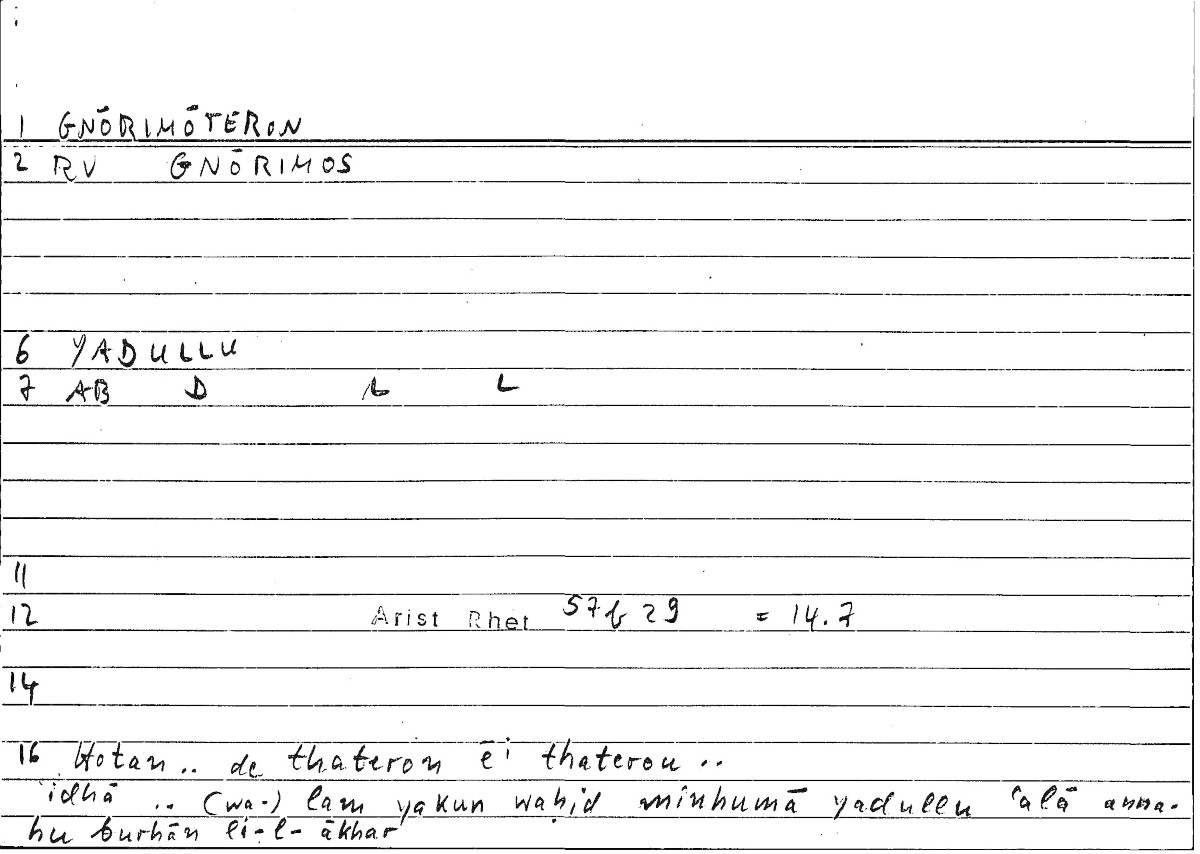 1 GNŌRIMŌTERON
2 RV GNŌRIMOS
6 YADULLU
7 AB D L L
11
12 Arist Rhet 57b29 = 14.7
14
16 Hotan .. de thateron ēi thaterou ..
'idhā .. (wa-) lam yakun wāḥid minhumā yadullu ʿalā anna-
hu burhān li-l-ākhar